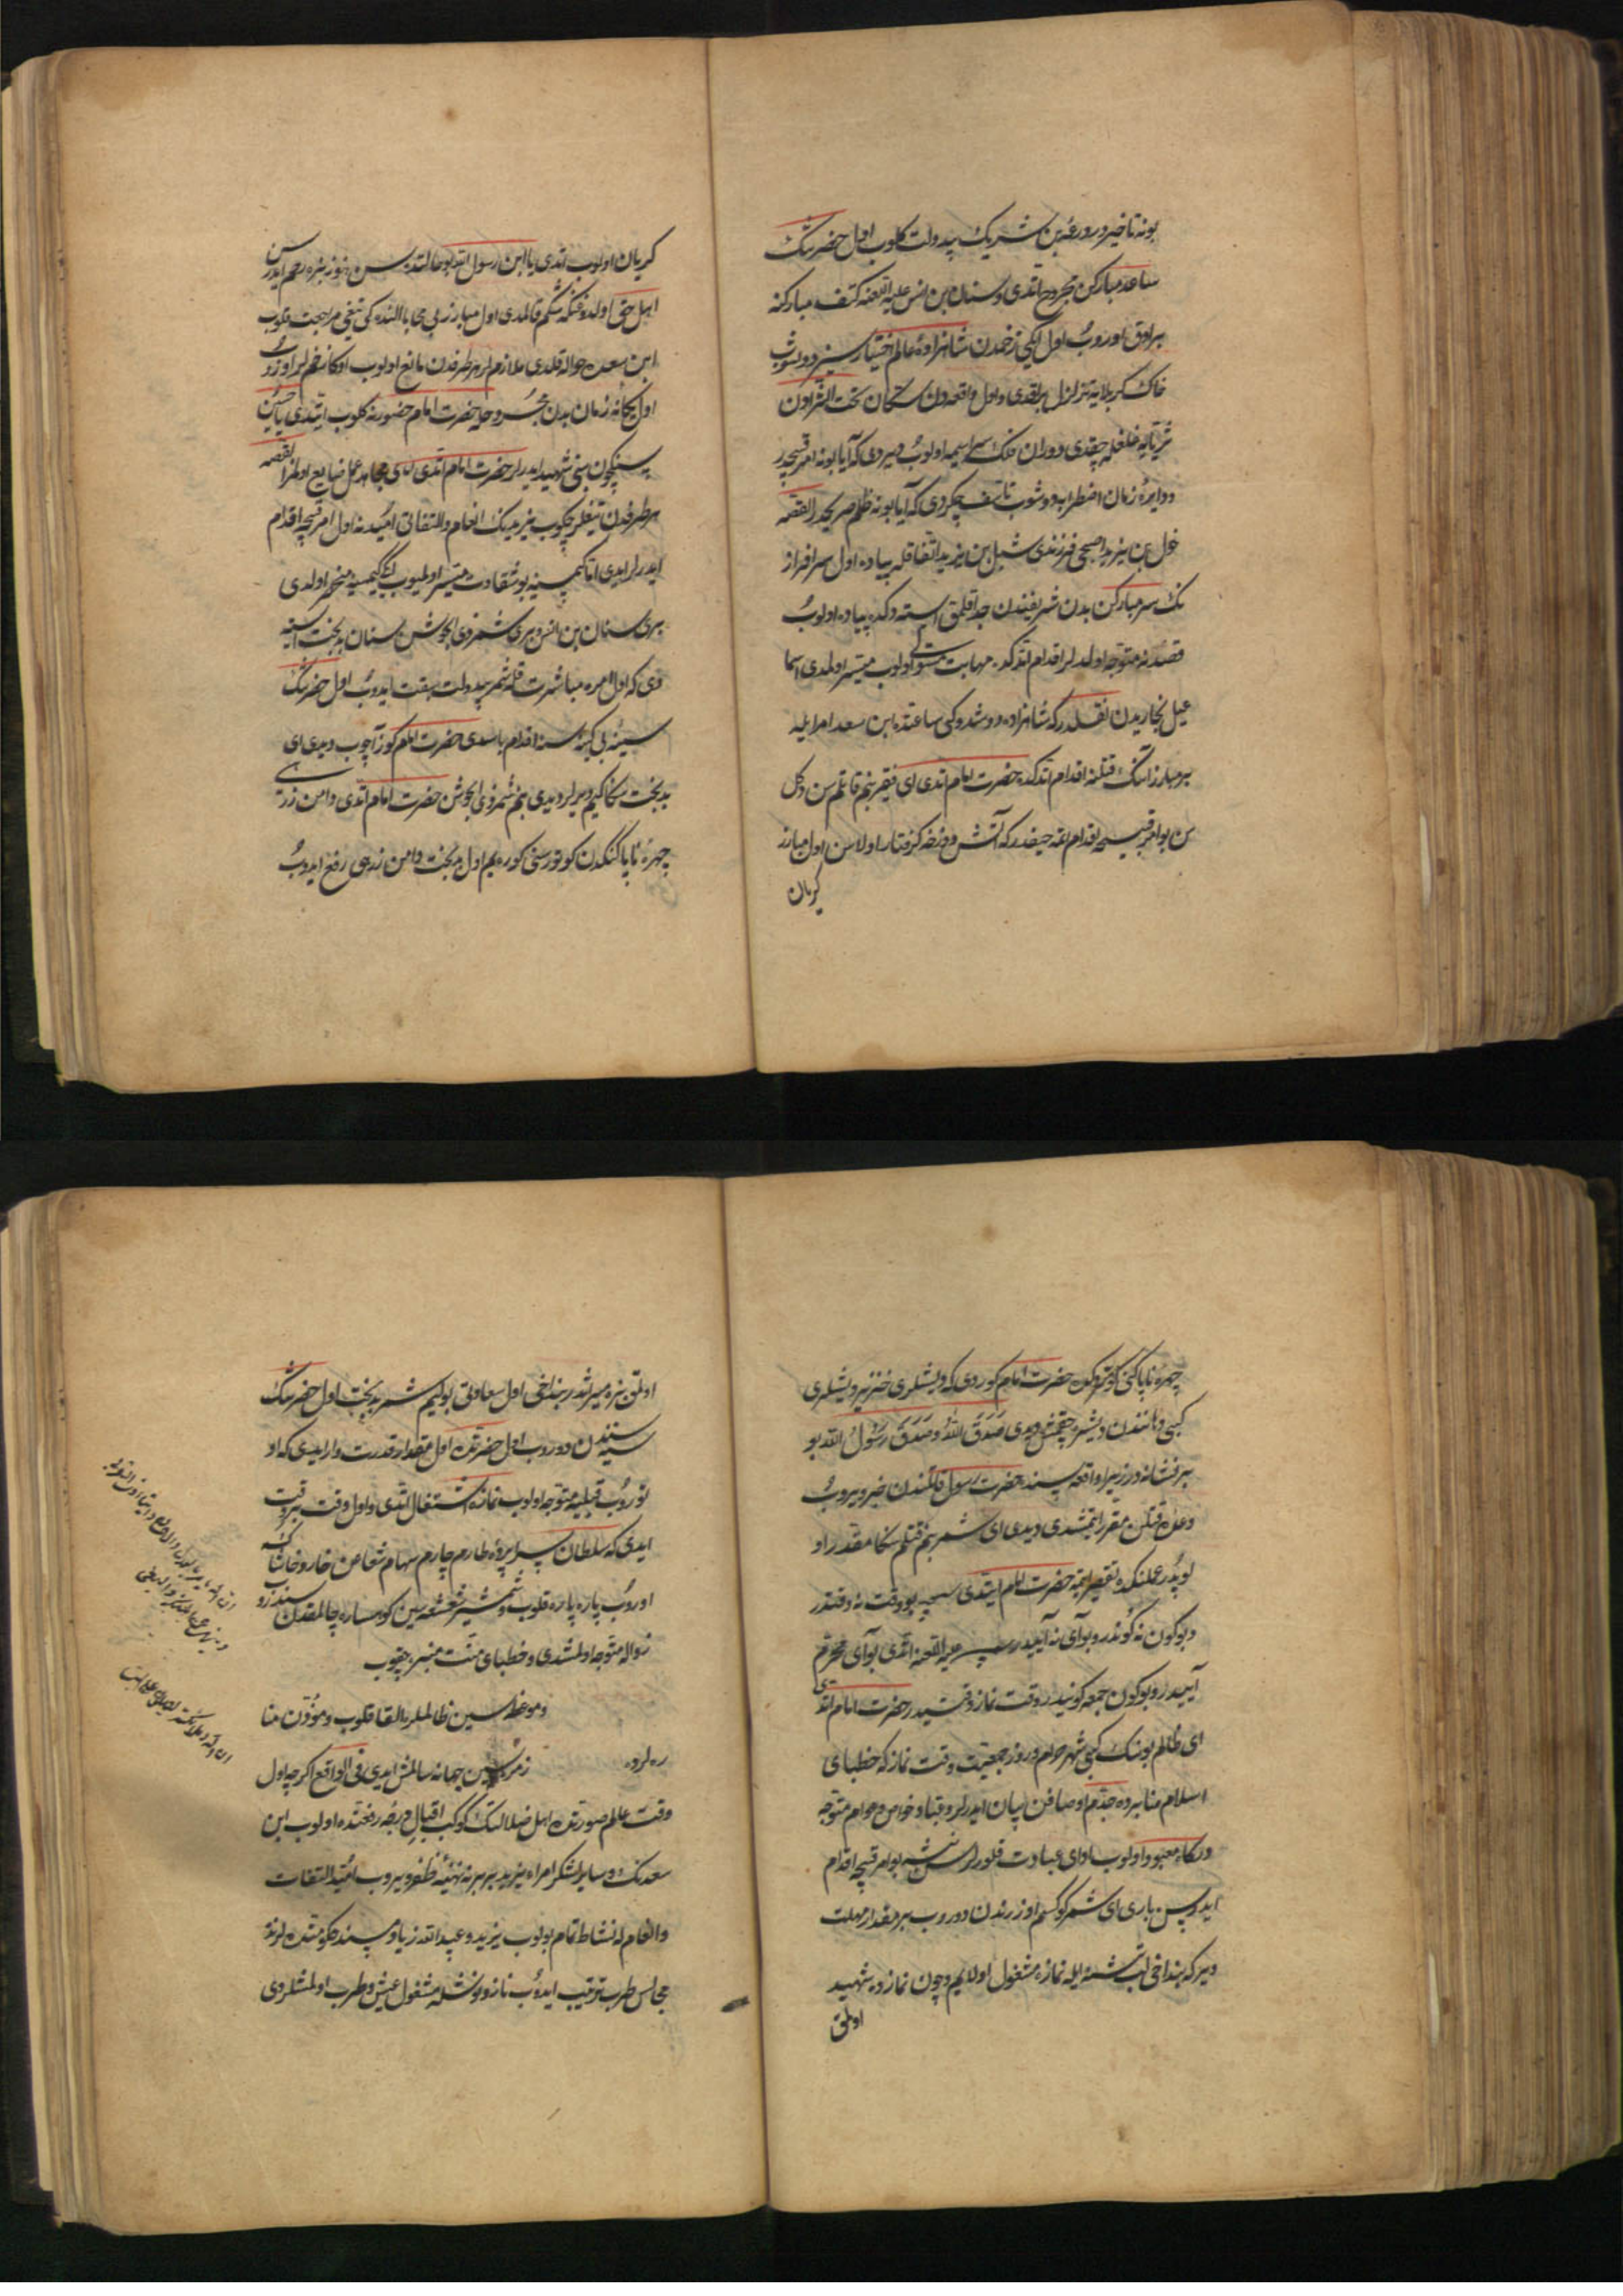 بونه تاخیر در ورعه بن شریک بیدولت کلوب اول حضرتنک
ساعد مبارکن مجروح اتدی و سنان بن انس علیه اللعنه کتف مبارکنه
بر اوق اوروب اول ایکی زخمدن شاهزادهٔ عالم اختیارسیز دوشوب
خاک کربلایه تزلزل براقدی و اول واقعه دن سکان تحت الثرادن
ثریایه غلغله چقدی دوران فلک سراسیمه اولوب دیردی که آیا بو نه امر قبیحدر
و دایرهٔ زمان اضطرابه دوشوب تاسف چکردی که آیا بو نه ظلم صریحدر القصه
خول بن یزید اصبحی فرزندی شبل بن یزید اتفاقله پیاده اول سرافراز
نک سر مبارکن بدن شریفندن جدا قلمق استدوکده پیاده اولوب
قصدنه متوجه اولدیلر اقدام اتدکده مهابت مستولی اولوب میسر اولمدی اسما
عیل بخاریدن نقلدر که شاهزاده دوشدوکی ساعتده ابن سعد امرایله
بر مبارز انک قتلنه اقدام اتدکده حضرت امام اتدی ای فقیر بنم قاتلم سن دکل
سن بو امر قبیحه اقدام اتمه حیفدر که آتش دوزخه کرفتار اولاسن اول مبارز
کریان
کریان اولوب اتدی یا ابن رسول الله بو حالتده سن هنوز بزه رحم ایدرسن
اهل حق اولدوغکه شکم قالمدی اول مبارز بی محابا النده کی تیغی مراجعت قلوب
ابن سعده حواله قلدی ملازملر هر طرفدن مانع اولوب اوکا زخملر اوروب
اول یکانهٔ زمان بدن مجروحله حضرت امام حضورنه کلوب ایتدی یا حسین
سنکچون بنی شهید ایدرلر حضرت امام اتدی ای مجاهد عمل ضایع اولمز القصه
هر طرفدن تیغلر چکوب یزیدک انعام و التفاتی امیدنه اول امر قبیحه اقدام
ایدرلر ایدی اما کمسنه یه بو شقاوت میسر اولمیوب ایکی کمسنه یه منحصر اولدی
بری سنان بن انس و بری شمر ذی الجوشن سنان بدبخت استه
دی که اول امره مباشرت قله شمر بیدولت سبقت ایدوب اول حضرتنک
سینهٔ بی کینه سنه اقدام باسدی حضرت امام کوز آچوب دیدی ای
بدبخت سکا کیم دیرلر دیدی بنم شمر ذی الجوشن حضرت امام اتدی دامن زرهی
چهرهٔ ناپاکنکدن کوتور سنی کوره یم اول بدبخت دامن زرهی رفع ایدوب
چهرهٔ ناپاکنی کوتردکده حضرت امام کوردی که دیشلری خنزیر دیشلری
کبی دهانندن دیشره چقمش دیدی صدق الله و صدق رسول الله بو
بر نشانه در زیرا واقعه سنده حضرت رسول قاتلمدن خبر ویروب
وعدهٔ قتلن مقرر ایتمشدی دیدی ای شمر بنم قتلم سکا مقدر او
لوبدر عملنکده تقصیر ایتمه حضرت امام ایتدی سمپه بو وقت نه وقتدر
و بو کون نه کوندر و بو آی نه آیدر شمر علیه اللعنه اتدی بو آی محرم
آییدر و بو کون جمعه کونیدر و وقت نماز وقتیدر حضرت امام اتدی
ای ظالم بونک کبی شهر حرام و روز جمعیت وقت نماز که خطبای
اسلام منابرده جدم اوصافن بیان ایدرلر و عباد خواص و عوام متوجه
درکاه معبود اولوب ادای عبادت قلورلر سن نه بو امر قبیحه اقدام
ایدرسن باری ای شمر کوکسم اوزرندن دوروب بر مقدار مهلت
ویر که بنداخی لب تشنه ایله نمازه مشغول اولایم و چون نمازده شهید
اولمق
اولمق بزه میراثدر بنداخی اول سعادتی بولیم شمر بدبخت اول حضرتنک
سینه سندن دوروب اول حضرتده اول مقدار قدرت وار ایدی که او
توروب قبله یه متوجه اولوب نمازه اشتغال اتدی و اول وقت بر وقت
ایدی که سلطان سراپردهٔ طارم چارم سهام شعاعن خار و خاشاکه
اوروب پاره پاره قلوب و شمشیر شعشعه سین کوهساره چالمقدن
زواله متوجه اولمشدی و خطبای منت منبره چقوب
و موعظه سین ظالملره القا قلوب و مؤذن منا
ره لرده زمزمه سین جهانه سالمش ایدی فی الواقع اکرچه اول
وقت عالم صورتده اهل ضلالتک کوکب اقبالی درخشنده اولوب ابن
سعدنک و سایر لشکر امراء یزید بربرنه تهنیهٔ ظفر ویروب امید التفات
و انعام له نشاط تمام بولوب یزید و عبید الله زیاد مسند حکومتده لرنده
مجالس طرب ترتیب ایدوب ناز و نوشله مشغول عیش و طرب اولمشلردی